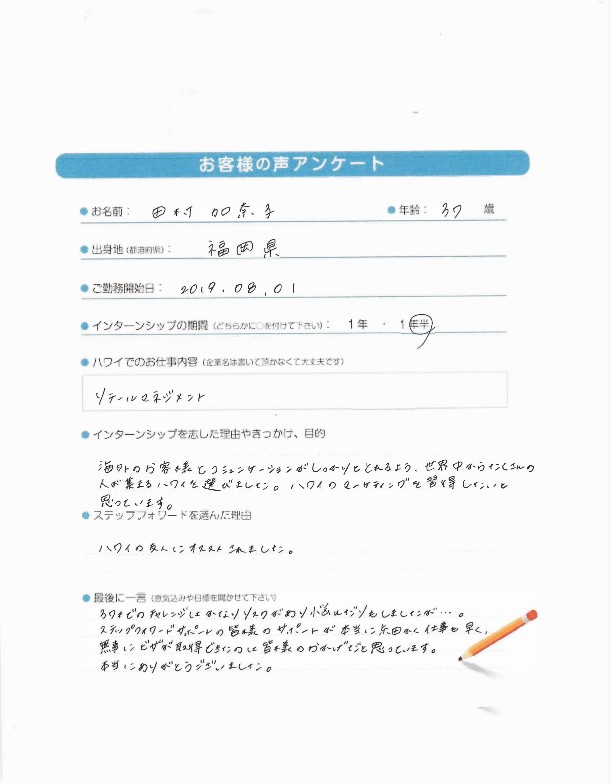 お客様の声アンケート
●お名前： 田村 加奈子 ●年齢： 37 歳
●出身地（都道府県）： 福岡県
●ご勤務開始日： 2019.08.01
●インターンシップの期間（どちらかに○を付けて下さい）： 1年 ・ 1年半
●ハワイでのお仕事内容（企業名は書いて頂かなくて大丈夫です）
リテールマネジメント
●インターンシップを志した理由やきっかけ、目的
海外のお客様とコミュニケーションがしっかりととれるよう、世界中からたくさんの
人が集まるハワイを選びました。ハワイのマーケティングを習得したいと
思っています。
●ステップフォワードを選んだ理由
ハワイの友人にオススメされました。
●最後に一言（意気込みや目標を聞かせて下さい）
37才でのチャレンジはかなりリスクがあり
ステップフォワードサポートの皆様のサポートが本当に 仕事も早く、
無事にビザが取得できたのは皆様のおかげだと思っています。
本当にありがとうございました。